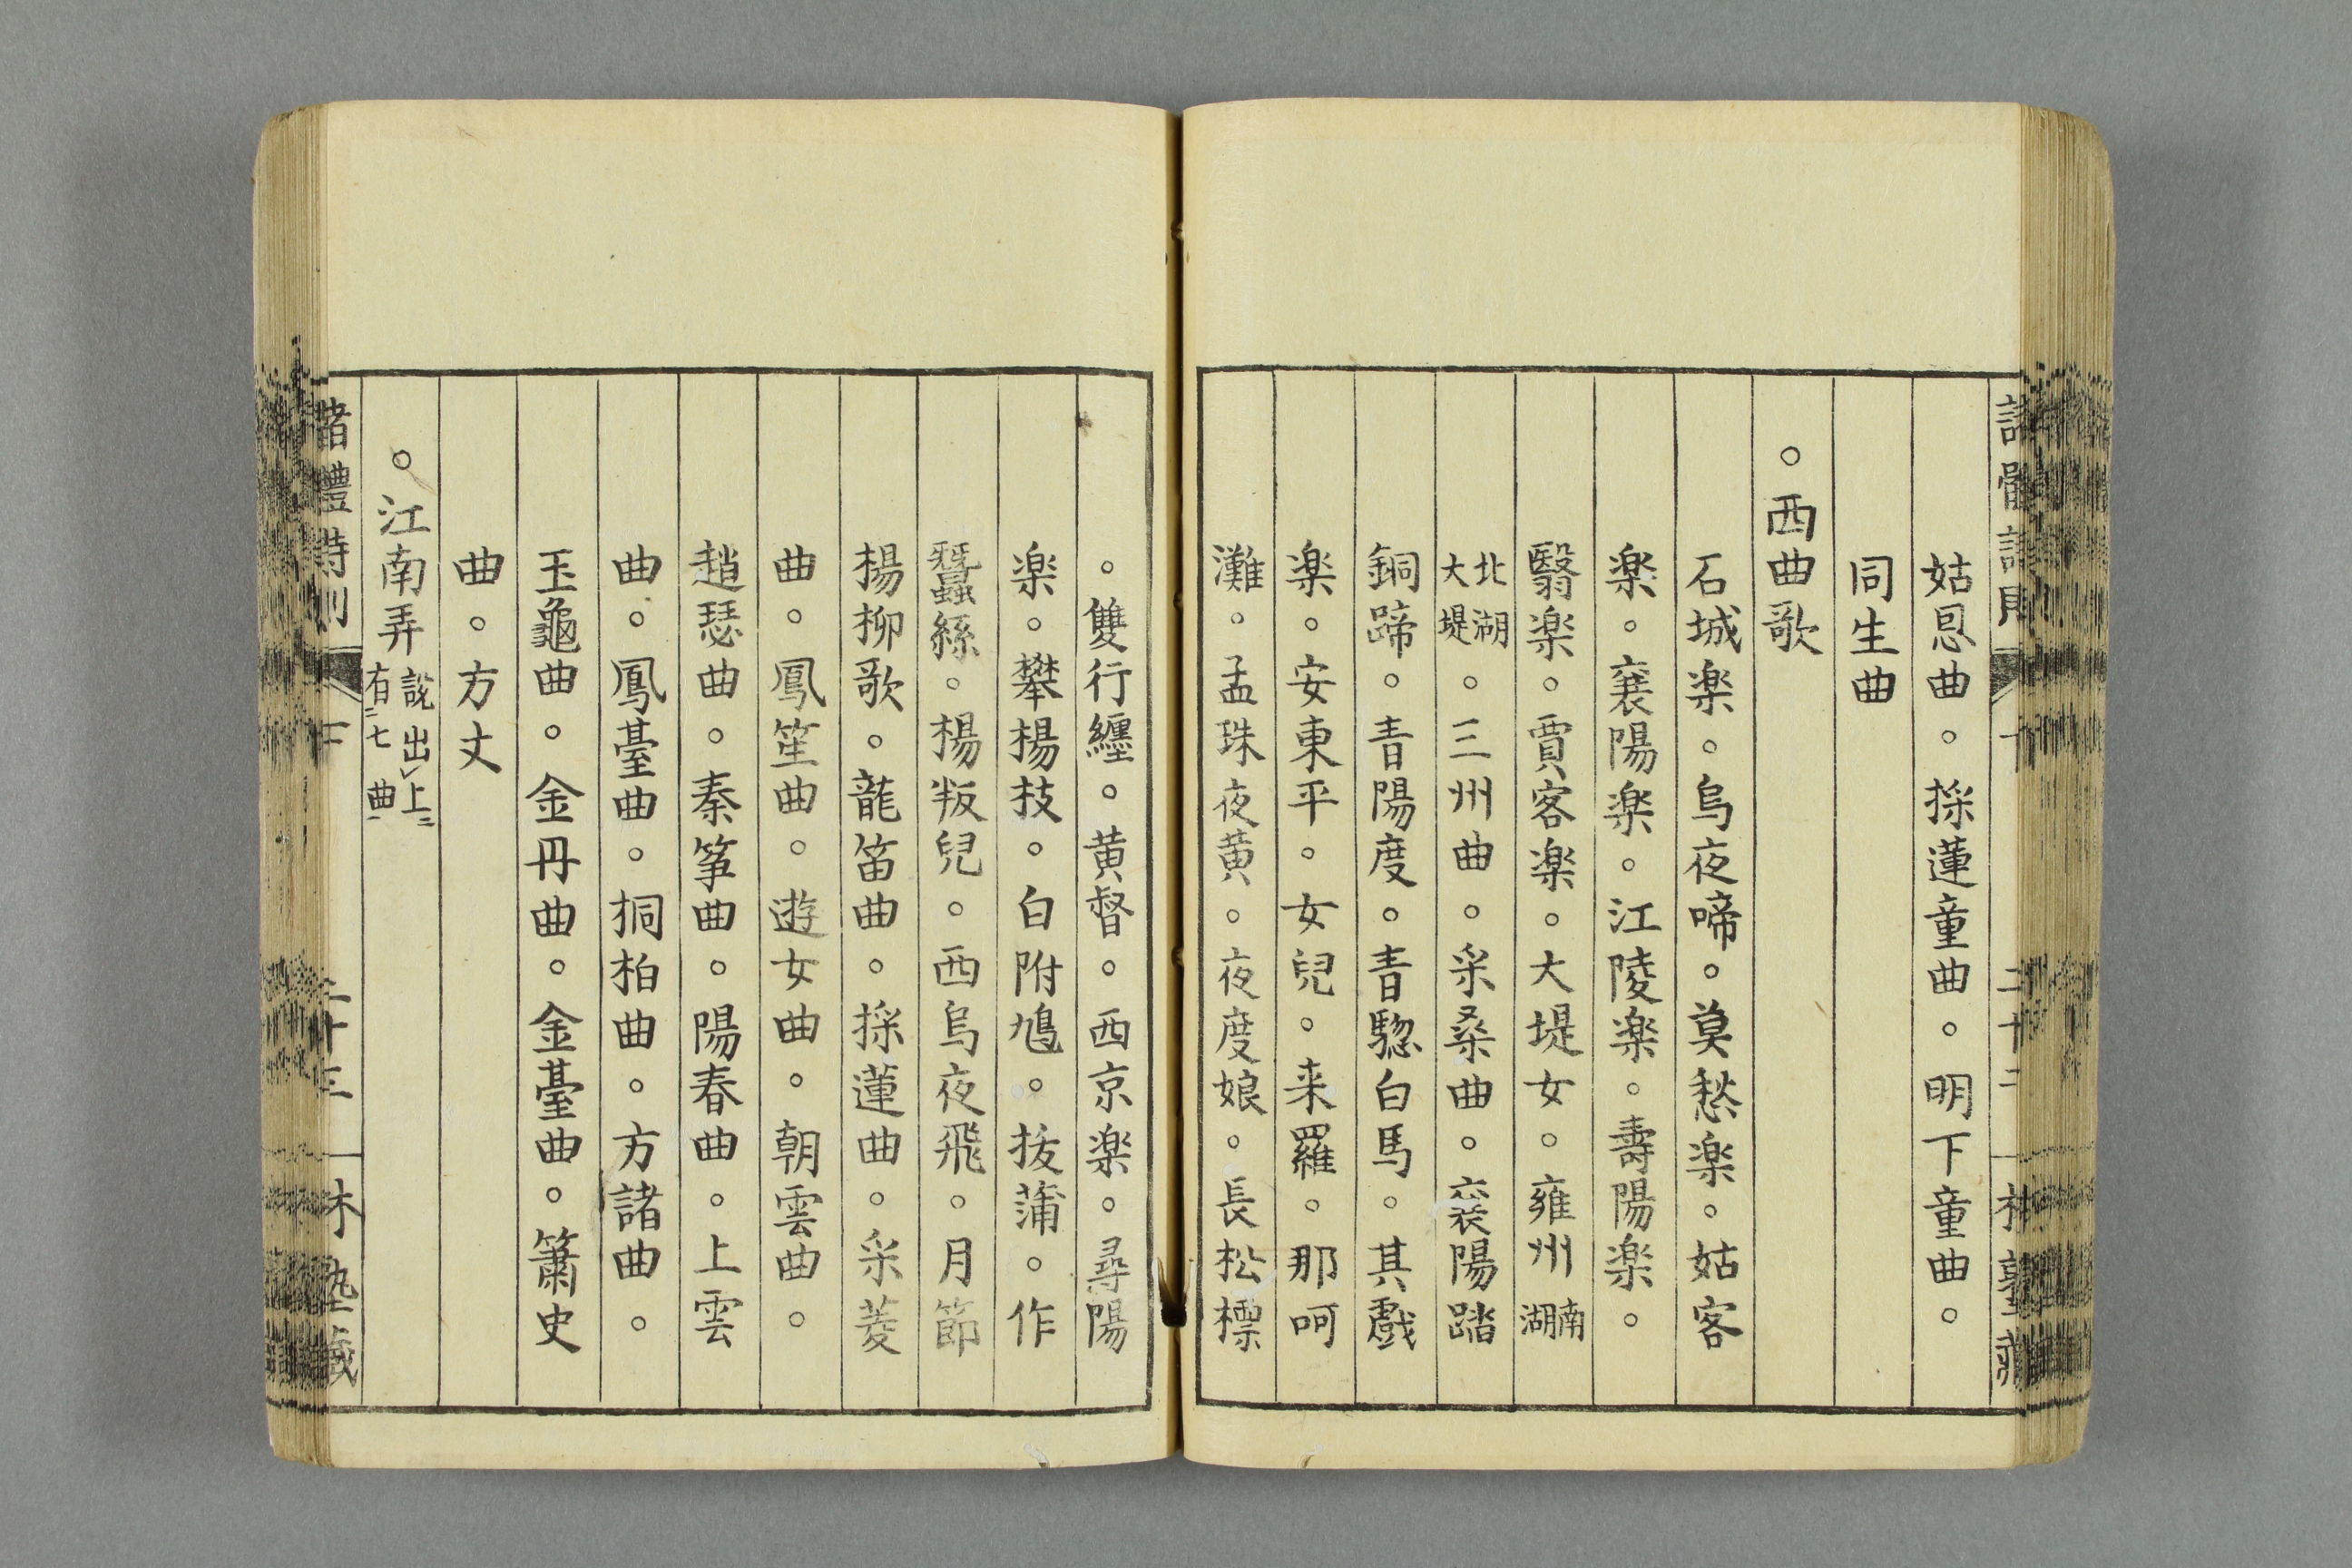 姑恩曲。採蓮童曲。明下童曲。
同生曲
。西曲歌
石城楽。烏夜啼。莫愁楽。姑客
楽。襄陽楽。江陵楽。壽陽楽。
翳楽。賈客楽。大堤女。雍州南湖
北湖大堤。三州曲。采桒曲。襄陽踏
銅蹄。青陽度。青驄白馬。其戲
楽。安東平。女兒。来羅。那呵
灘。孟珠夜黄。夜度娘。長松標
。雙行纏。黄督。西京楽。尋陽
楽。攀楊枝。白附鳩。拔蒲。作
蠶絲。楊叛兒。西烏夜飛。月節
楊柳歌。龍笛曲。採蓮曲。采菱
曲。鳳笙曲。遊女曲。朝雲曲。
趙瑟曲。秦筝曲。陽春曲。上雲
曲。鳳臺曲。桐柏曲。方諸曲。
玉龜曲。金丹曲。金臺曲。簫史
曲。方丈
。江南弄說出レ上ニ有ニ七曲一
諸體詩則
二十三